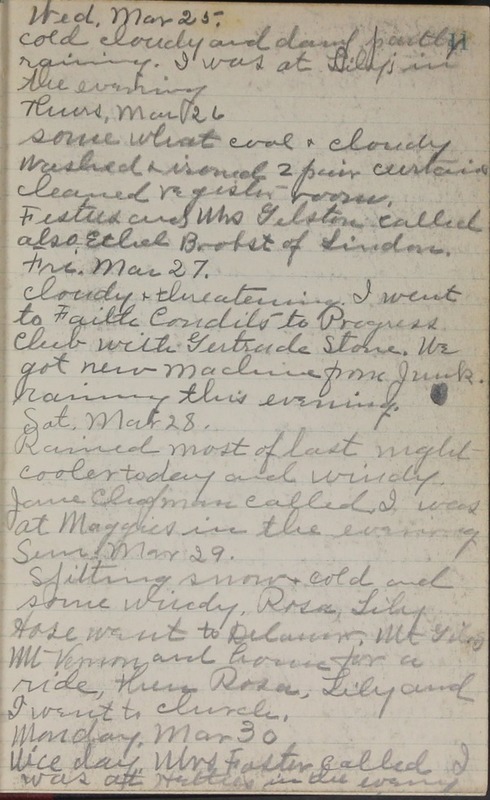 11
Wed, Mar 25.
cold cloudy and damp, partly
raining. I was at Lily's in
the evening
Thurs, Mar 26
some what cool & cloudy
Washed & ironed 2 pair curtains
cleaned register room.
Festus and Mrs Gelston called
also Ethel Brobst of Lindon.
Fri. Mar 27.
cloudy & threatening. I went
to Faith Condits to Progress
Club with Gertrude Stone. We
got new machine from Junk.
raining this evening.
Sat. Mar 28.
Rained most of last night
cooler today and windy.
Jane Chapman called. I was
at Maggies in the evening
Sun. Mar 29.
Spitting snow & cold and
some windy. Rosa, Lily
went to Delawar, Mt Gilead
Mt Vernon and home for a
ride, then Rosa, Lily and
I went to church.
Monday, Mar 30
Nice day, Mrs Foster called I
was at Hatties in the evening